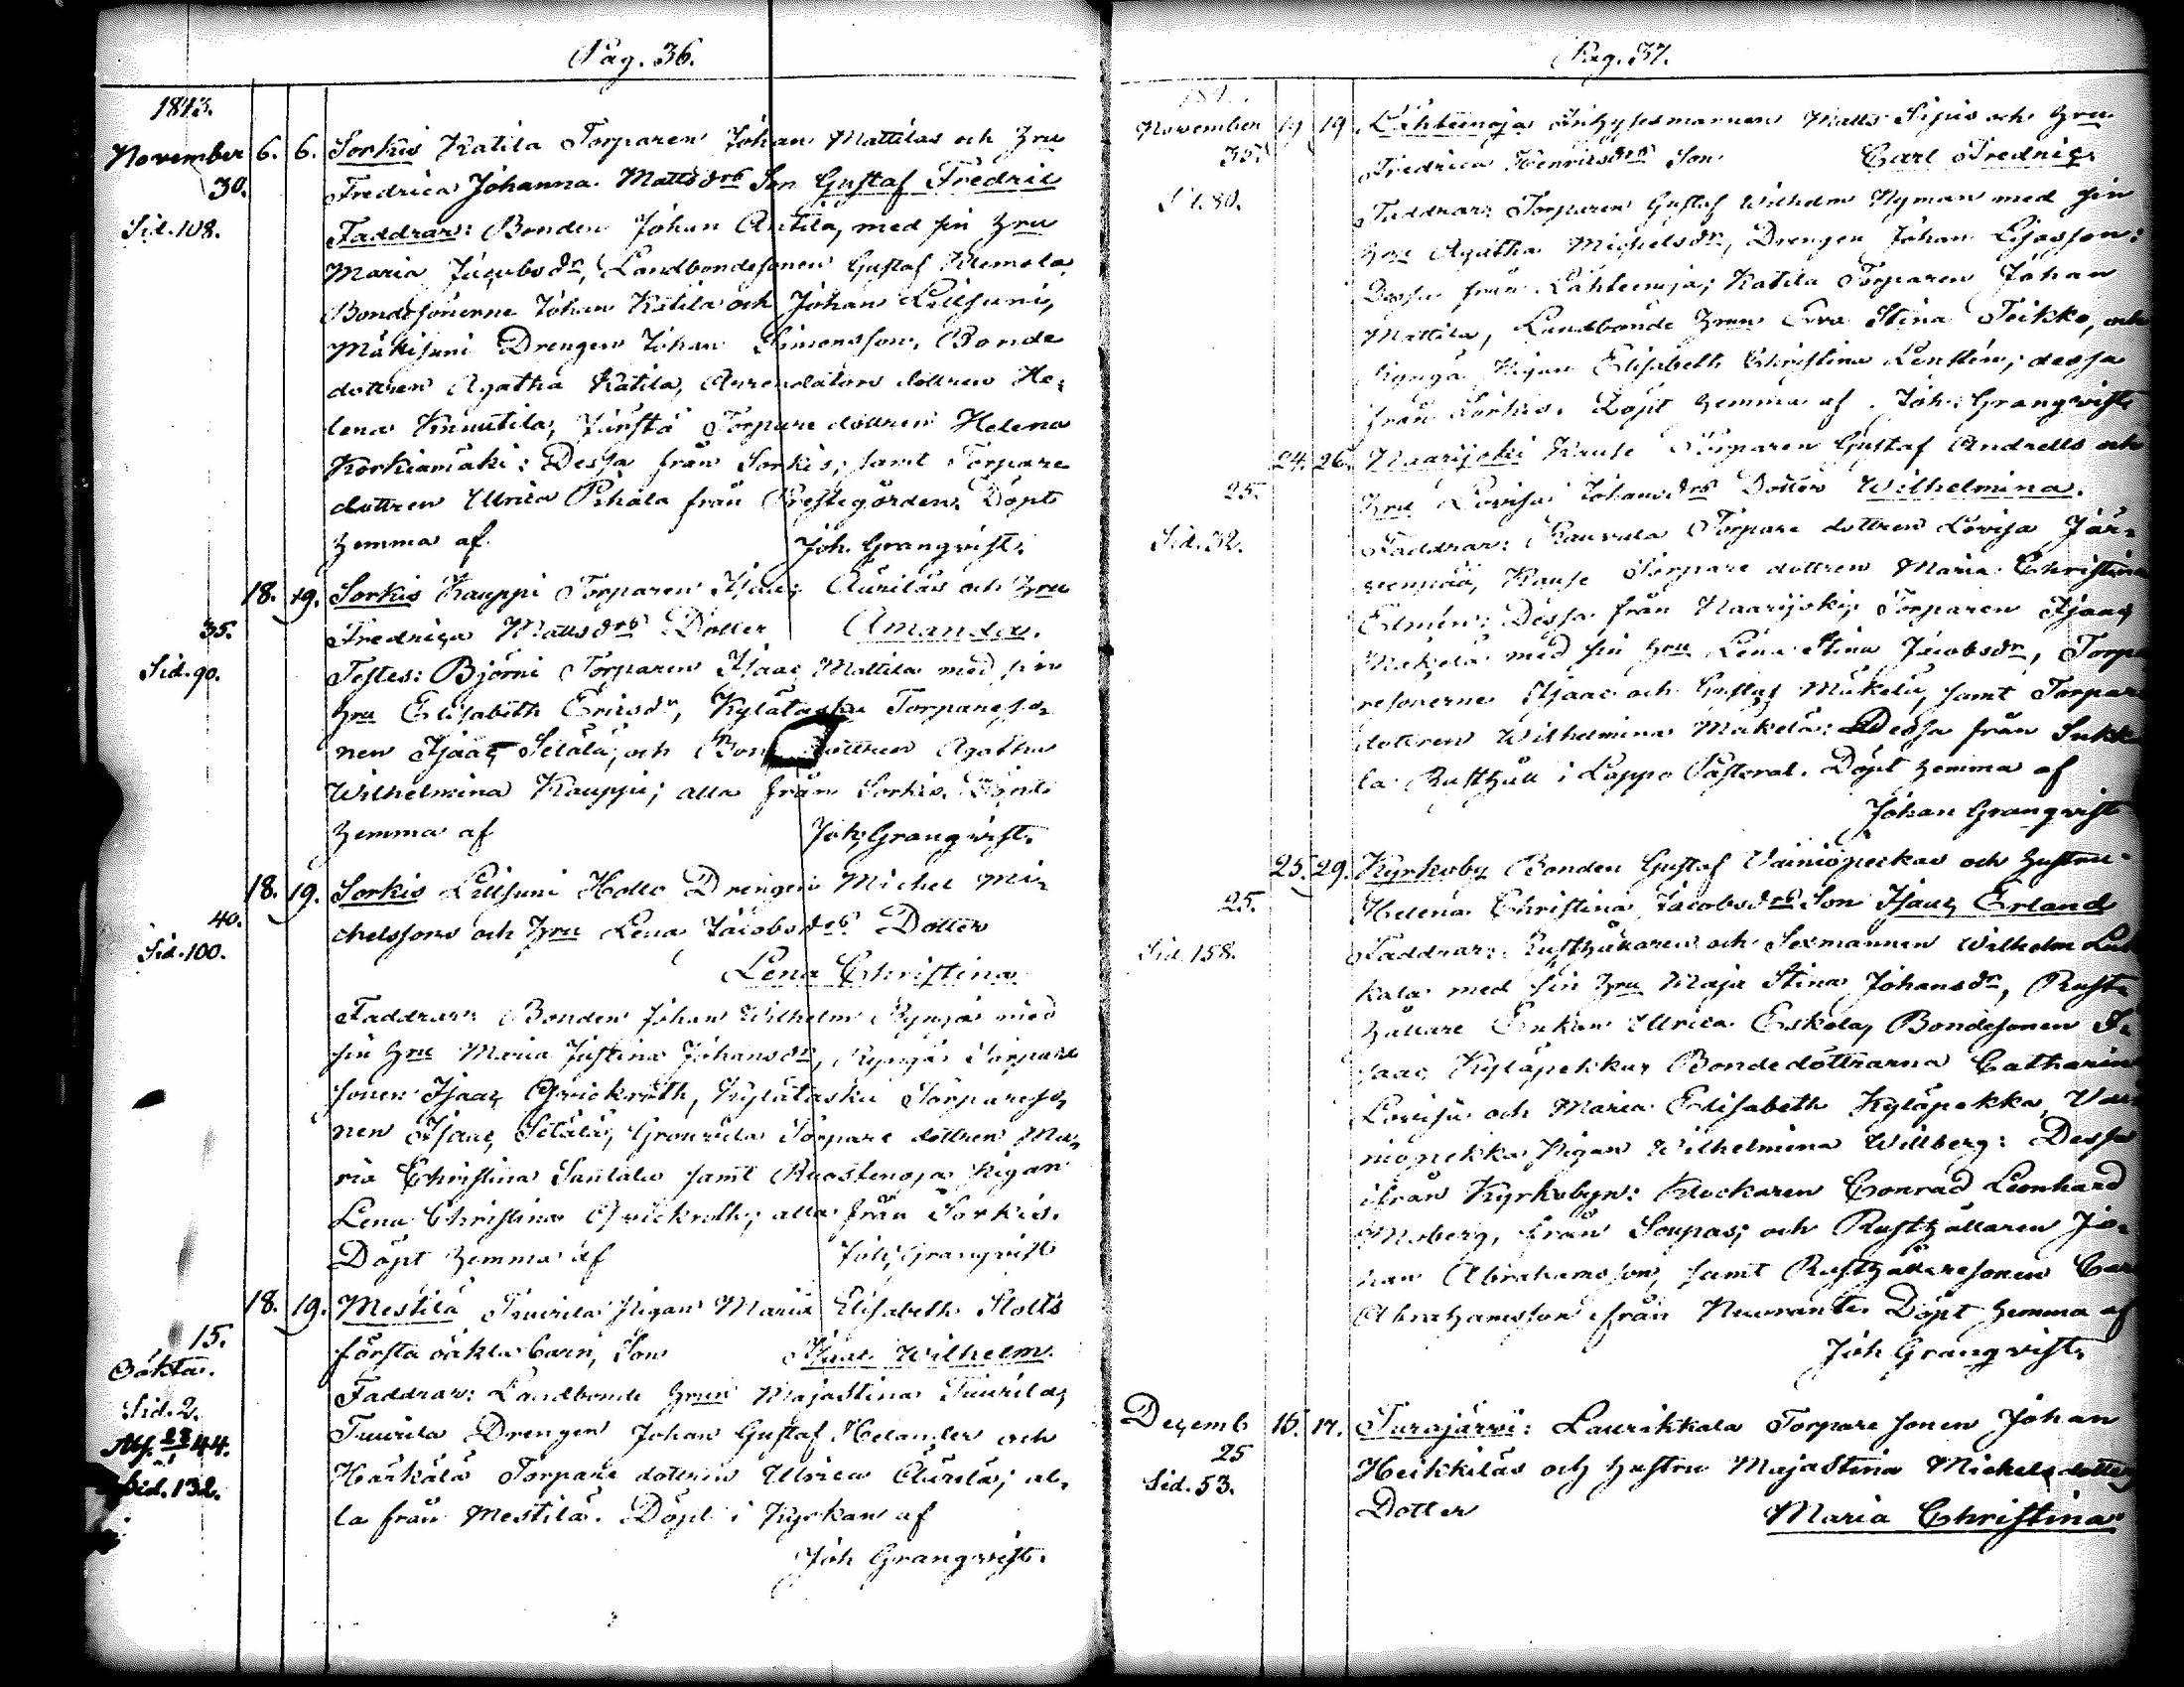 Pag. 36.
1843.
November 6. 6. Sorkis Katila Torparen Johan Mattilas och Hru
30. Fredrica Johanna Mattsdrs Son Gustaf Fredric
Sid. 108. Faddrar: Bonden Johan Antila, med sin Hru
Maria Jacobsdr, Landbondesonen Gustaf Klemola,
Bondesönerne Johan Katila och Johan Lillsuni,
Mäkisuni Drengen Johan Simonsson, Bonde
dottren Agatha Katila, Arrendators dottren He-
lena Knuutila, Torpare dottren Helena
Korkiamäki: Dessa från Sorkis; samt Torpare
dottren Ulrica Pihala från Prestegården. Döpt
hemma af Joh. Granqvist.
18. 19. Sorkis Kauppi Torparen Isaac Aurilas och Hru
35. Fredrica Mattsdrs Dotter Amanda.
Sid. 90. Testes: Björni Torparen Isaac Mattila med sin
Hru Elisabeth Ericsdr, Kylätasku Torpareso-
nen Isaac Setälä, och Bon dottren Agatha
Wilhelmina Kauppi; alla från Sorkis. Döpt
hemma af Joh. Granqvist.
18. 19. Sorkis Lillsuni Hollo Drengen Michel Mi-
40. chelssons och Hru Lena Jacobsdrs Dotter
Sid. 100. Lena Christina
Faddrar: Bonden Johan Wilhelm Ryngö med
sin Hru Maria Justina Johansdr, Torpare
sonen Isaac Qvickroth, Kylätasku Torpareso-
nen Isaac Setälä, Torpare dottren Ma-
ria Christina Santala samt Ruostenoja Pigan
Lena Christina Qvickroth; alla från Sorkis.
Döpt hemma af Joh. Granqvist
18. 19. Mestilä Tuurila Pigan Maria Elisabeth Stolts
15. första oäkta barn, Son Isaac Wilhelm.
Oäkta. Faddrar: Landbonde Hrun Majastina Tuurila,
Sid. 2. Tuurila Drengen Johan Gustaf Helander och
44. Härkälä Torpare dottren Ulrica Aurila; al-
Sid. 132. la från Mestilä. Döpt i Kyrkan af
Joh Granqvist.
Pag. 37.
November 19 19 Lähteenoja Matts Sipis och Hru
35. Fredrica Henricsdrs Son Carl Fredric.
Sid. 80. Faddrar: Torparen Gustaf Wilhelm Nyman med sin
Hru Agatha Michelsdr, Drengen Johan
Dessa från Lähteenoja; Katila Torparen Johan
Mattila, Landbonde Hrun Eva Stina Teikko, och
Pigan Elisabeth Christina Lenstén; dessa
från Sorkis. Döpt hemma af Joh. Granqvist
24. 26. Naarijoki Krause Torparen Gustaf Andrells och
25. Hru Lovisa Johansdrs Dotter Wilhelmina.
Sid. 32. Faddrar: Torpare dottren Lovisa Jär-
venpää, Torpare dottren Maria Christina
Elmén: Dessa från Naarijoki; Torparen Isaac
Mäkelä med sin Hru Lena Stina Jacobsdr, Torpa
resonerne Isaac och Gustaf Mäkelä, samt Torpar
dottren Wilhelmina Mäkelä: Dessa från Sukk
la Rusthåll i Loppo Pastorat. Döpt hemma af
Johan Granqvist
25. 29. Kyrkoby Bonden Gustaf Vainiopeckas och hustru
25. Helena Christina Jacobsdrs Son Isaac Erland
Sid. 158. Faddrar: Rusthållaren och Sexmannen Wilhelm
kala med sin Hru Maja Stina Johansdr, Rust-
hållare Enkan Ulrica Eskola, Bondesonen I-
saac Kyläpekka, Bondedöttrarna Catharin
Lovisa och Maria Elisabeth Kyläpekka, Vai
niopekka Pigan Wilhelmina Willberg: Dessa
ifrån Kyrkobyn: Klockaren Conrad Leonhard
Moberg, från Soupas; och Rusthållaren Jo-
han Abrahamsson, samt Rusthållaresonen Car
Abrahamsson från Neuvante. Döpt hemma af
Joh Granqvist.
Decemb 16. 17. Turajärvi: Laurikkala Torpare sonen Johan
25 Heikkiläs och hustru Majastina Michelsdotters
Sid. 53. Dotter Maria Christina